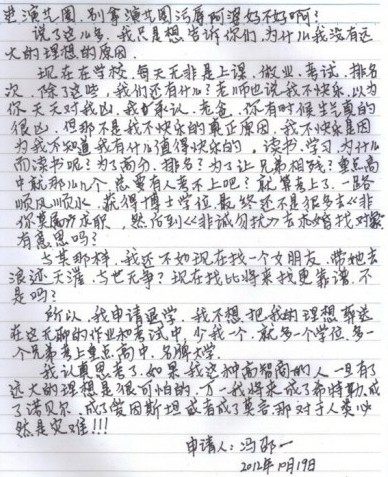 进演艺圈，别拿演艺圈污辱阿谭好不好啊？
说了这么多，我只是想告诉你们，为什么我没有远
大的理想的原因。
现在在学校，每天无非是上课，做业，考试，排名
次，除了这些，我们还有什么？老师也说我不快乐，以为
你天天对我凶，我承认，老爸，你有时候生气真的
很凶，但那不是我不快乐的真正原因，我不快乐是因
为我不知道我有什么值得快乐的，读书，学习，为什么
而读书呢？为了高分，排名？为了让兄弟相残？重点高
中就那么几个，总要有人考不上吧？就算考上了，一路
顺风顺水，获得博士学位，最终还不是很多去《非
你莫属》求职，然后到《非诚勿扰》去求婚找对象，
有意思吗？
与其那样，我还不如现在找一个女朋友，带她去
浪迹天涯，与世无争？现在找比将来找更靠谱，不
是吗？
所以，我申请退学，我不想把我的理想葬送
在这无聊的作业和考试中，少我一个，就多一个学位，多一
个兄弟考上重点高中，名牌大学。
我认真思考了，如果我这种高智商的人一旦有了
远大的理想是很可怕的，万一我将来成了希特勒，成
了诺贝尔，成了爱因斯坦或者成了莫言，那对于人类必
然是灾难！！！
申请人：冯邵一
2012年10月19日